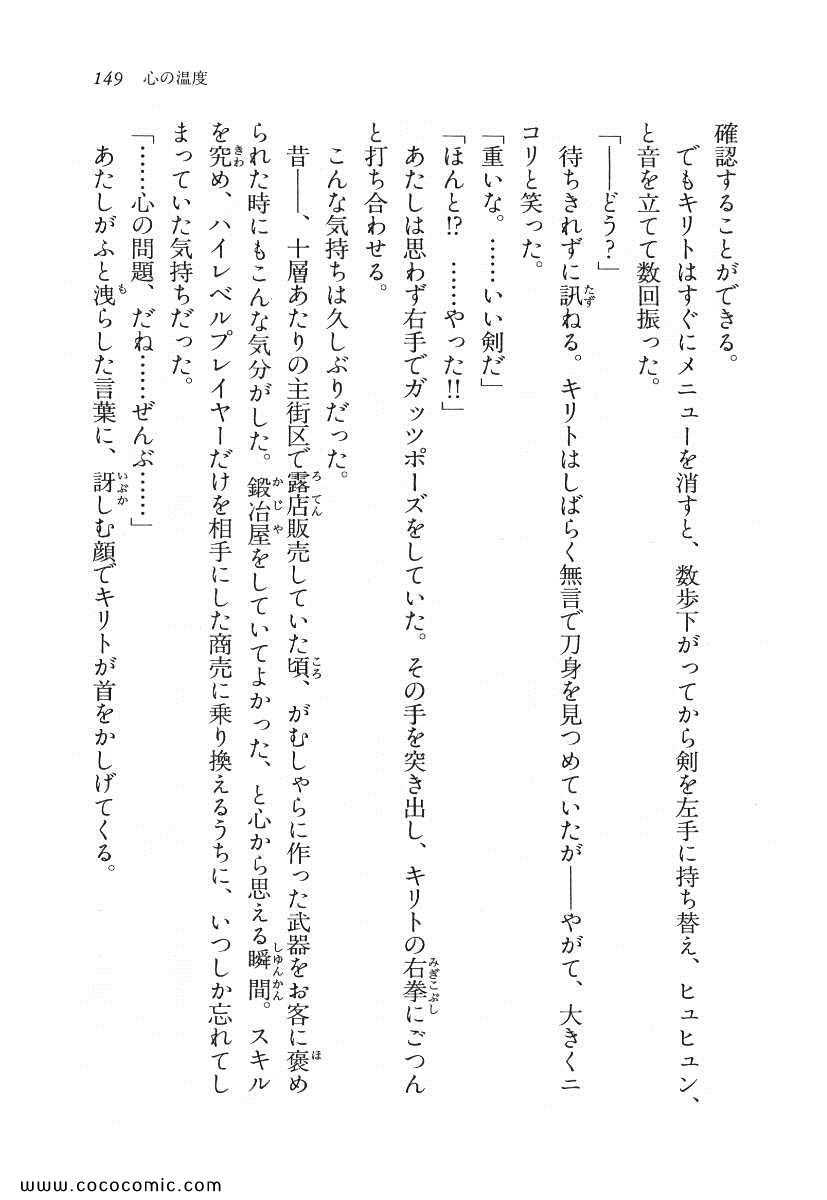 149 心の温度
確認することができる。
でもキリトはすぐにメニューを消すと、数歩下がってから剣を左手に持ち替え、ヒュヒュン、
と音を立てて数回振った。
「——どう？」
待ちきれずに訊ねる。キリトはしばらく無言で刀身を見つめていたが——やがて、大きくニ
コリと笑った。
「重いな。……いい剣だ」
「ほんと!? ……やった!!」
あたしは思わず右手でガッツポーズをしていた。その手を突き出し、キリトの右拳にごつん
と打ち合わせる。
こんな気持ちは久しぶりだった。
昔——、十層あたりの主街区で露店販売していた頃、がむしゃらに作った武器をお客に褒め
られた時にもこんな気分がした。鍛冶屋をしていてよかった、と心から思える瞬間。スキル
を究め、ハイレベルプレイヤーだけを相手にした商売に乗り換えるうちに、いつしか忘れてし
まっていた気持ちだった。
「……心の問題、だね……ぜんぶ……」
あたしがふと洩らした言葉に、訝しむ顔でキリトが首をかしげてくる。
www.cococomic.com